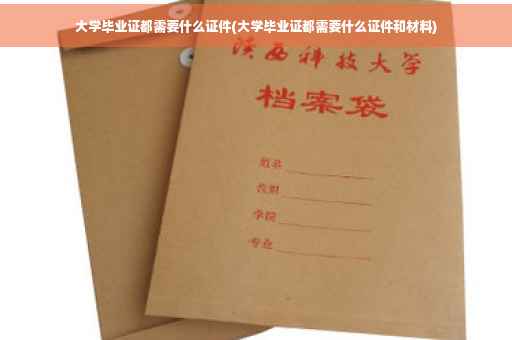 大学毕业证都需要什么证件(大学毕业证都需要什么证件和材料)
陕西科技大学
档案袋
姓名
学院
专业